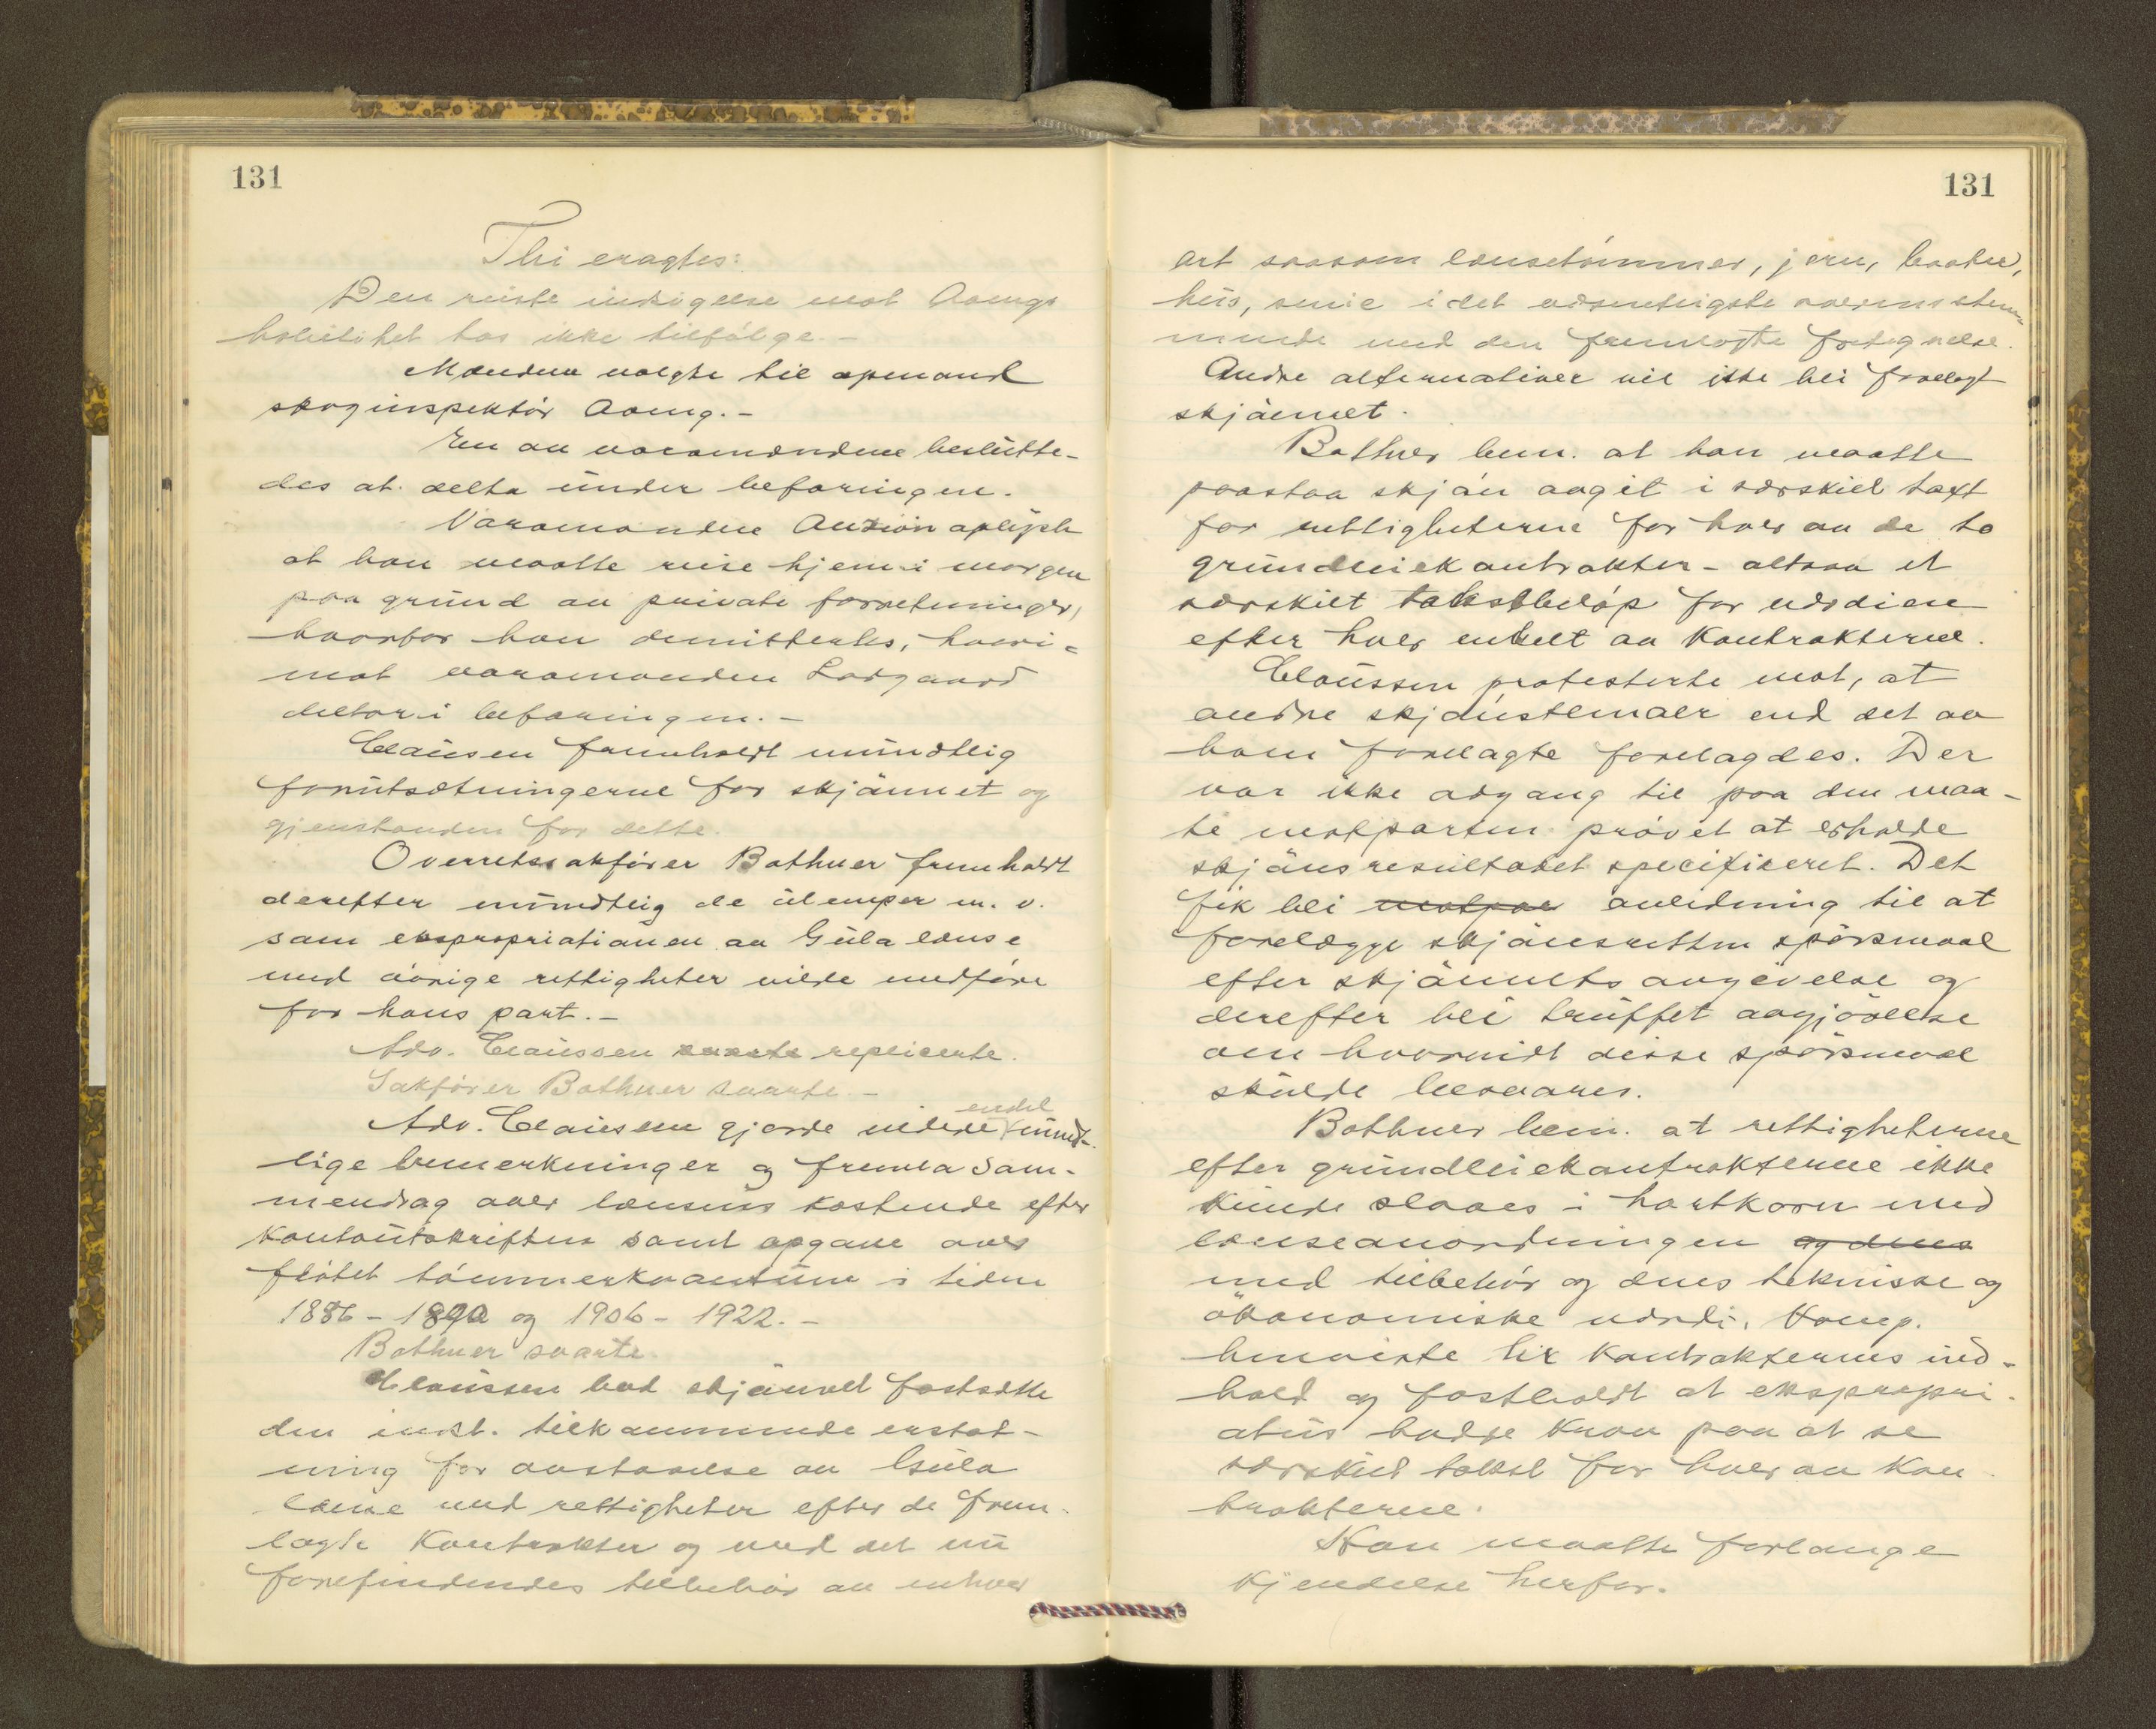 131
Thi eragtes:
Den reiste indsigelse mot Aamgs
habilitet tas ikke tilfølge. -
Mændene valgte til opmand
skoginspektør Aamg. -
En av varamændene beslutte-
des at delta under befaringen.
Varamanden Auzion oplyste
at han maatte reise hjem i morgen
paa grund av private forretninger,
hvorfor han demitteres, hvori-
mot varamanden Ladgaard
deltar i befaringen. -
Claussen fremholdt mundtlig
forutsætningerne for skjønnet og
gjenstanden for dette.
Overretssakfører Bothner fremholdt
derefter mundtlig de ulemper m. v.
som ekspropriationen av Gula lense
med øvrige rettigheter vilde medføre
for hans part. -
Adv. Claussen svarte replicerte.
Sakfører Bothner svarte. -
Adv. Claussen gjorde videre endel mundt-
lige bemerkninger og fremla sam-
mendrag over lænsens kostende efter
kontoutskriften samt opgave over
fløtet tømmerkvantum i tiden
1886 - 1890 og 1906 - 1922. -
Bothner svarte.
Claussen bad skjønnet fastsætte
den tilkommende erstat-
ning for avstaaelse av Gula
lænse med rettigheter efter de frem-
lagte kontrakter og med det nu
forefindendes tilbehør av enhver
131
art saasom lensetømmer, jern, baater,
hus, vinie i det væsentligste overensstem-
mende med den fremlagte fortegnelse.
Andre alternativer vil ikke bli forelagt
skjønnet.
Bothner bem. at han maatte
paastaa skjøn avgit i særskilt taxt
for rettigheterne for hver av de to
grundleiekontrakter - altsaa et
særskilt takstbeløp for værdien
efter hver enkelt av kontrakterne.
Claussen protesterte mot, at
andre skjønstemaer end det av
ham forelagte forelagdes. Der
var ikke adgang til paa den maa-
te motparten prøvet at erholde
skjønsresultatet specifiseret. Det
fik bli motpar anledning til at
forelægge skjønsretten spørsmaal
efter skjønnets avgivelse og
derefter bli truffet avgjørelse
om hvorvidt disse spørsmaal
skulde besvares.
Bothner bem. at rettigheterne
efter grundleiekontrakterne ikke
kunde slaaes i hartkorn med
lænseanordningen og dens
med tilbehør og dens tekniske og
økonomiske værdi. Komp.
henviste til kontrakternes ind-
hold og fastholdt at ekspropri-
atus hadde krav paa at se
særskilt takst for hver av kon-
trakterne.
Han maatte forlange
kjendelse herfor.